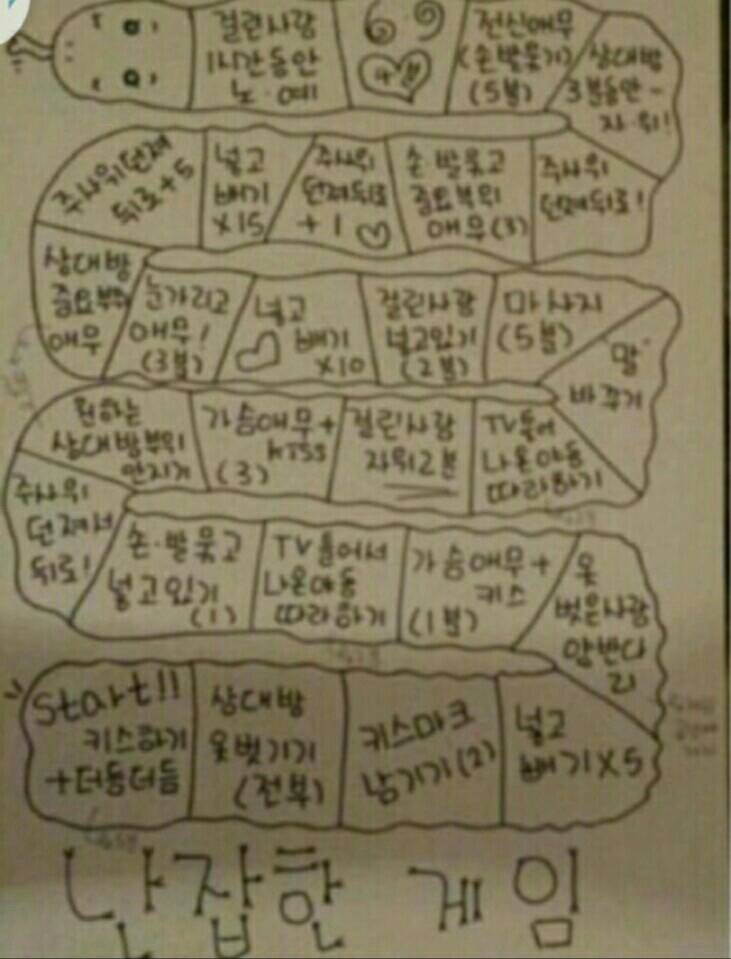 걸린사람
1시간동안
노·예
6·9
전신애무
(손발묶기)
(5분)
상대방
3분동안-
자·위!
주사위던져
뒤로+5
넣고
빼기
X15
주사위
던져뒤로
+1
손·발묶고
중요부위
애무(3)
주사위
던져뒤로!
상대방
중요부위
애무
눈가리고
애무!
(3분)
넣고
빼기
X10
걸린사람
넣고있기
(2분)
마사지
(5분)
"말"
바꾸기
원하는
상대방부위
만지기
가슴애무+
kiss
(3)
걸린사람
자위2분
TV틀어
나온야동
따라하기
주사위
던져서
뒤로!
손·발묶고
넣고있기
(1)
TV틀어서
나온야동
따라하기
가슴애무+
키스
(1분)
옷
벗은사람
Start!!
키스하기
+더듬더듬
상대방
옷벗기기
(전부)
키스마크
남기기(2)
넣고
빼기X5
난잡한 게임